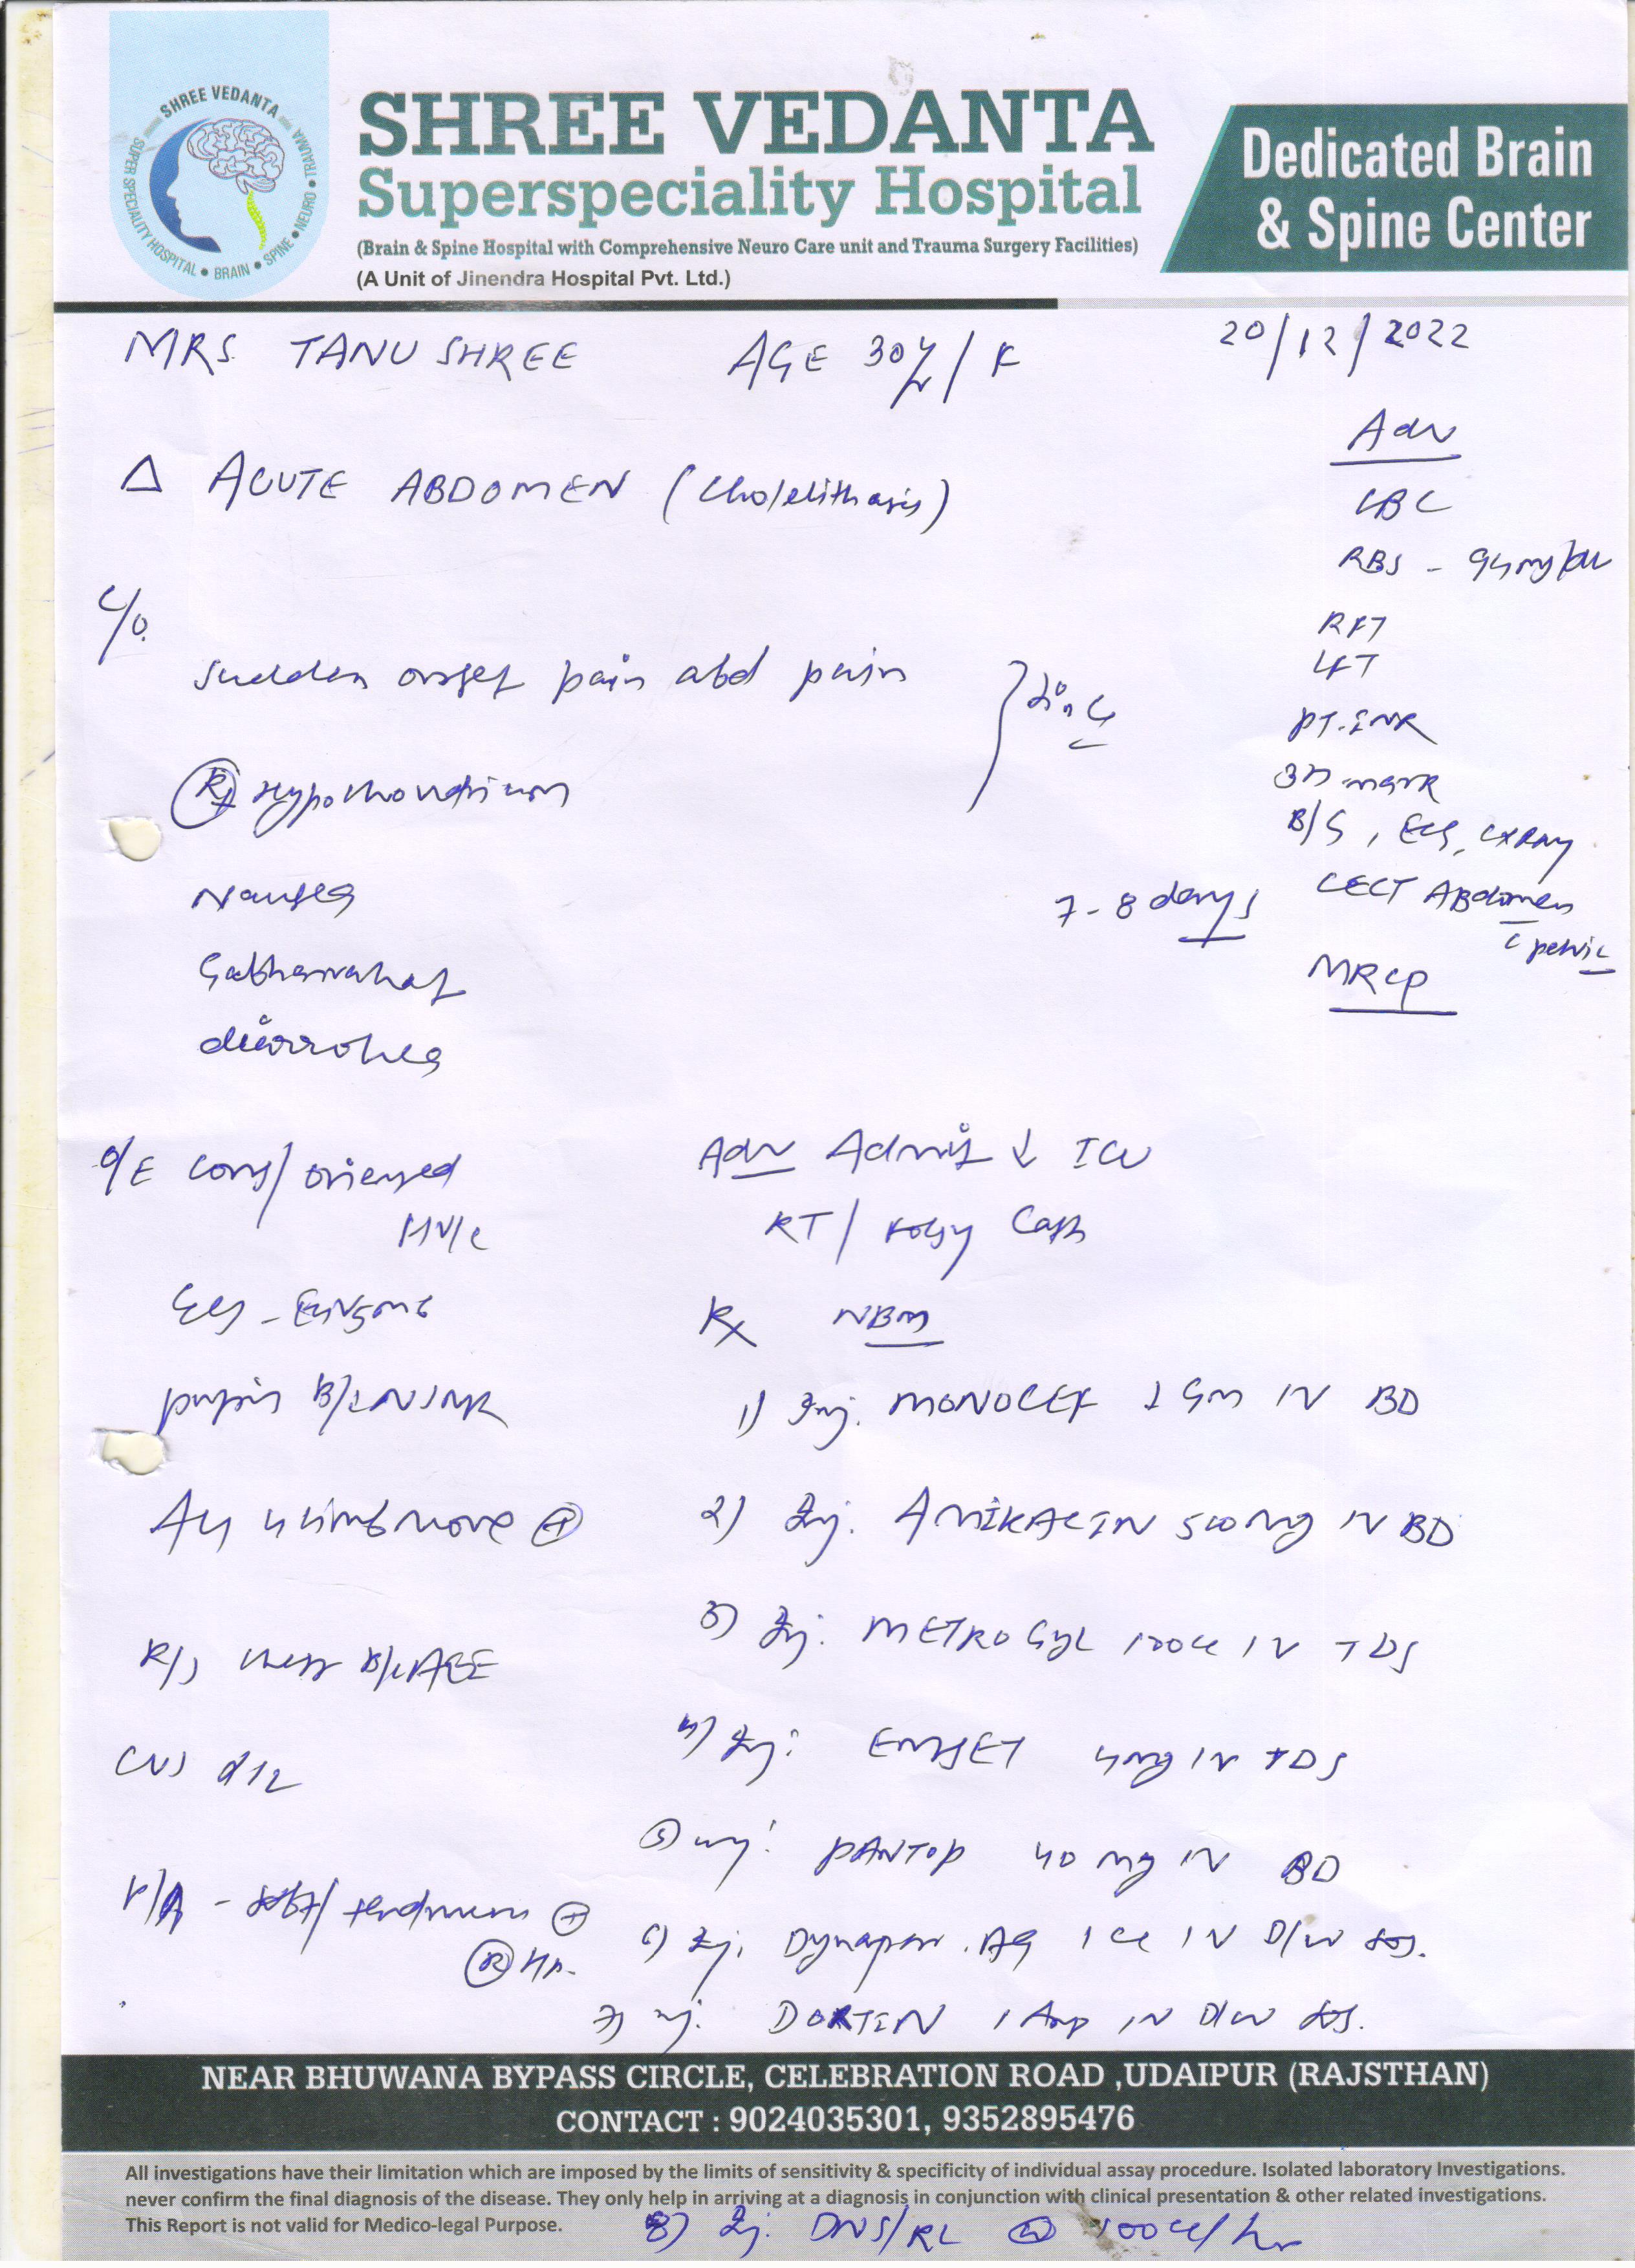 SHREE VEDANTA
SUPER SPECIALITY HOSPITAL • BRAIN • SPINE • NEURO • TRAUMA
SHREE VEDANTA
Superspeciality Hospital
(Brain & Spine Hospital with Comprehensive Neuro Care unit and Trauma Surgery Facilities)
(A Unit of Jinendra Hospital Pvt. Ltd.)
Dedicated Brain
& Spine Center
MRS. TANUSHREE AGE 30y/F
20/12/2022
Δ ACUTE ABDOMEN (Cholelithasis)
C/o.
Sudden onset pain abd pain
Rt Hypochondrium
since
Nausea
Gabhrawahat
diarrohea
7-8 days
Adv
CBC
RBS - 94mg/dl
RFT
LFT
PT-INR
3H mark
B/G, ECG, CXRay
CECT Abdomen
c pelvic
MRCP
O/E Cons/oriented
GCS - E4V5M6
pupils B/L NSNR
All 4 limb move +
R/S chest B/L AEE
CVS S1S2
P/A - soft/tenderness +
R HP.
Adv Admit ↓ ICU
RT/Foley Cath
Rx NBM
1) Inj. MONOCEF 1 GM IV BD
2) Inj. AMIKACIN 500mg IV BD
3) Inj. METROGYL 100cc IV TDS
4) Inj. EMSET 4mg IV TDS
5) Inj. PANTOP 40 mg IV BD
6) Inj. Dynapar.AQ 1 cc IV D/W SOS.
7) Inj. DOKTIN 1 Amp IV D/W SOS.
NEAR BHUWANA BYPASS CIRCLE, CELEBRATION ROAD ,UDAIPUR (RAJSTHAN)
CONTACT : 9024035301, 9352895476
All investigations have their limitation which are imposed by the limits of sensitivity & specificity of individual assay procedure. Isolated laboratory Investigations.
never confirm the final diagnosis of the disease. They only help in arriving at a diagnosis in conjunction with clinical presentation & other related investigations.
This Report is not valid for Medico-legal Purpose.
8) Inj. DNS/RL @ 100cc/hr